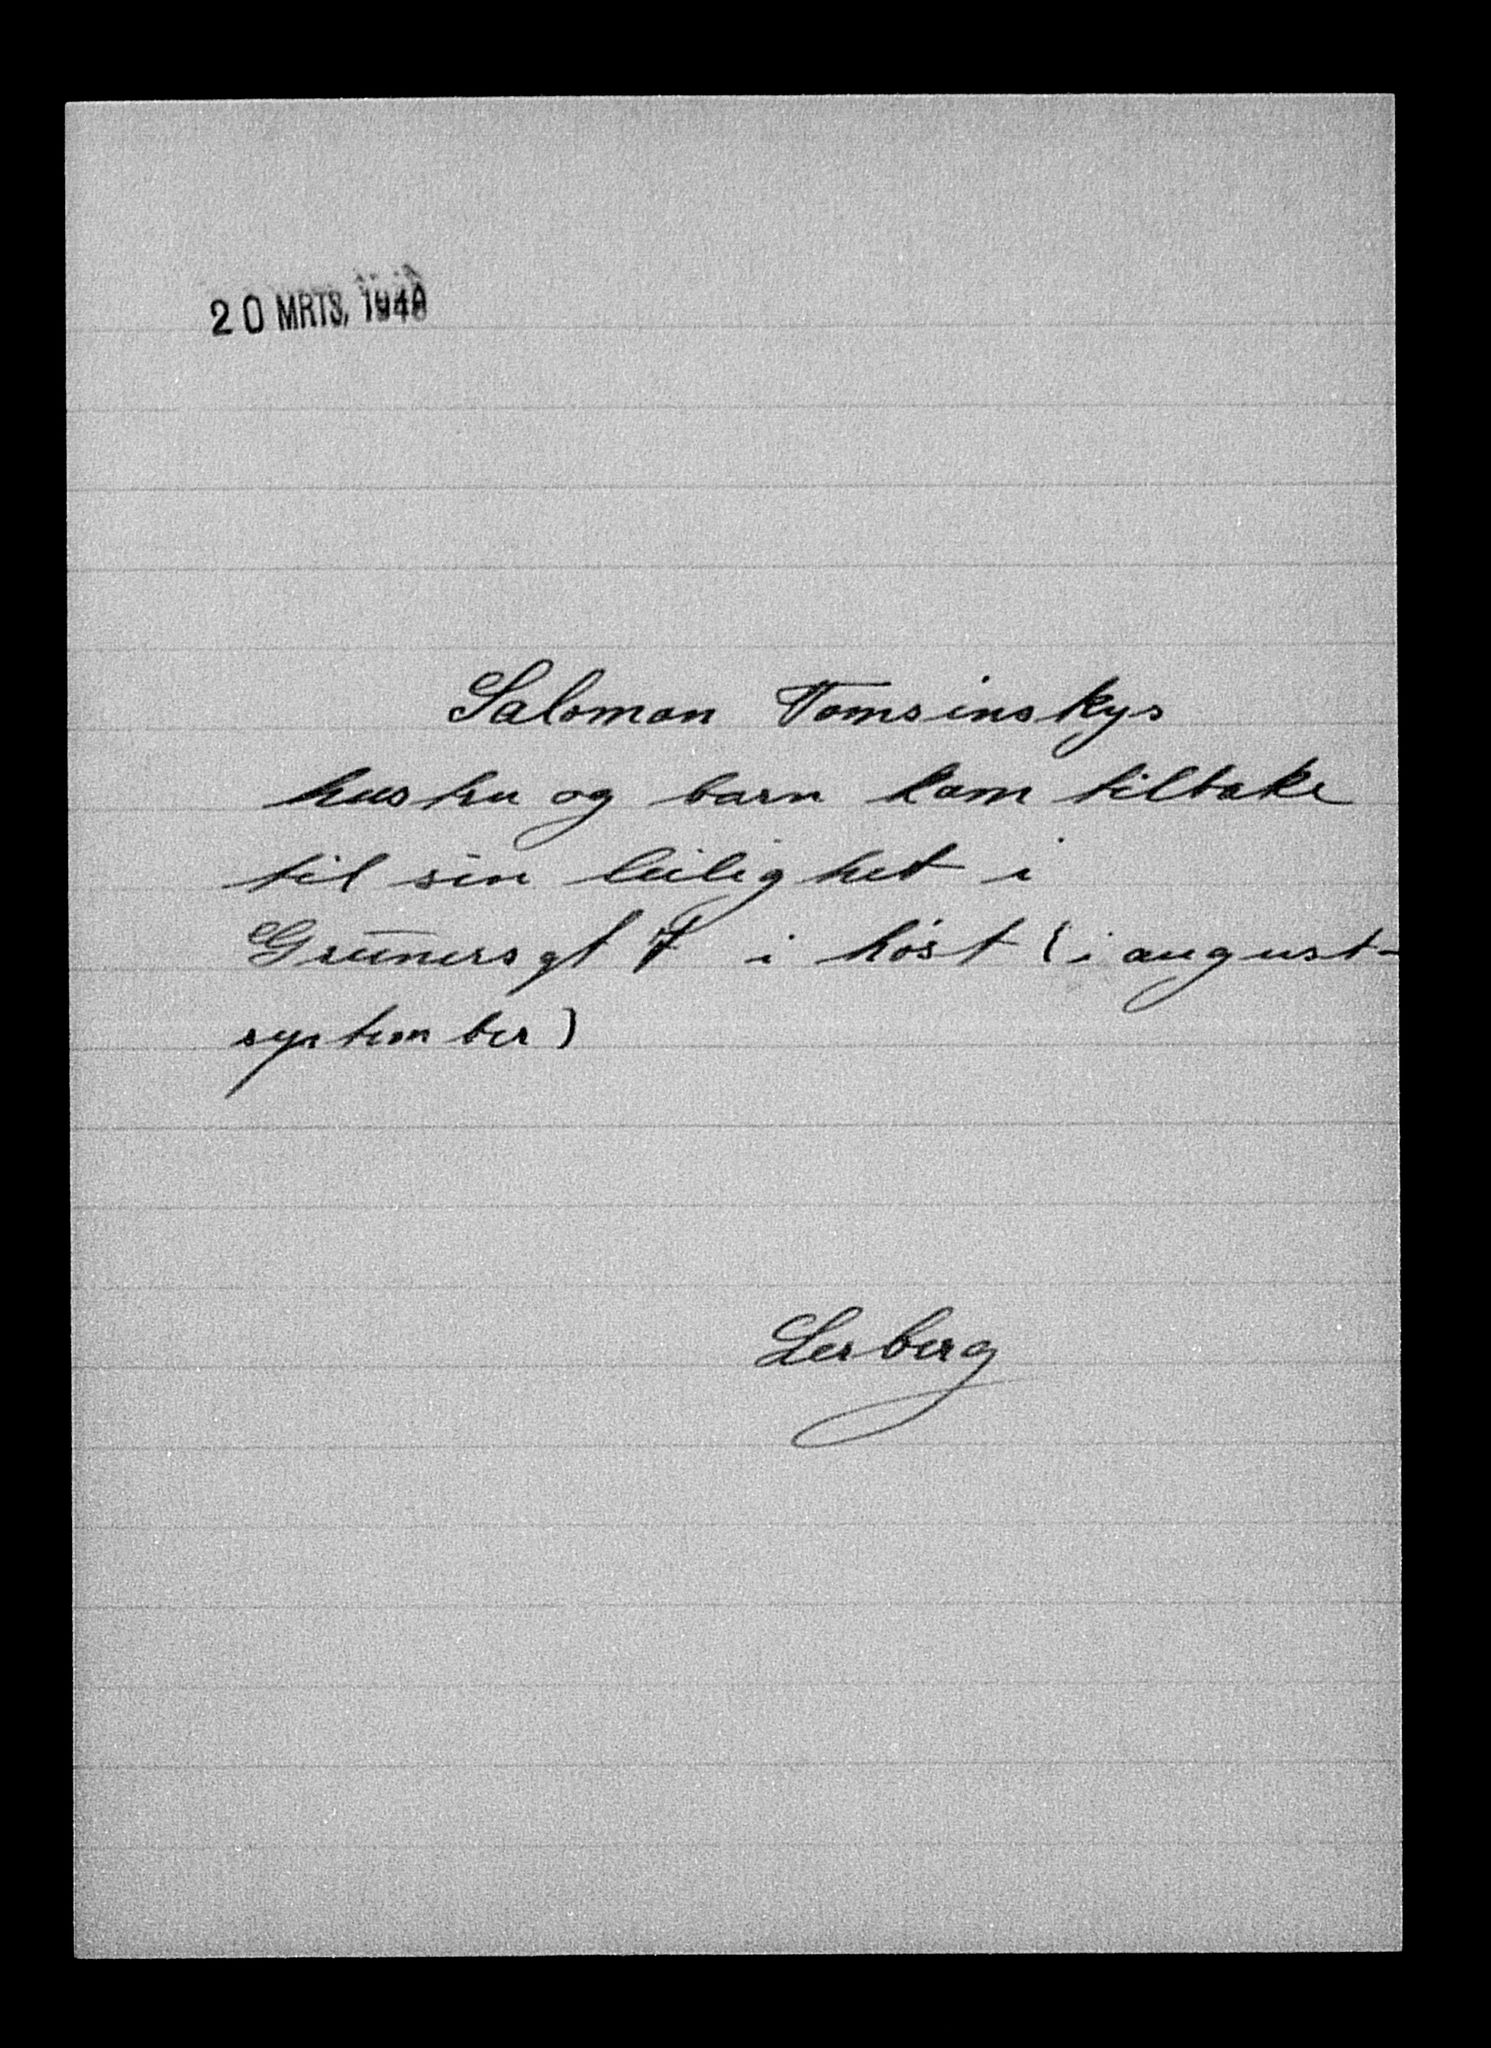 20 MRTS. 194
Salomon Tomsinskys
hustru og barn kom tilbake
til sin leilighet i
Grünersgt 7 i høst (i august-
september)
Lerberg